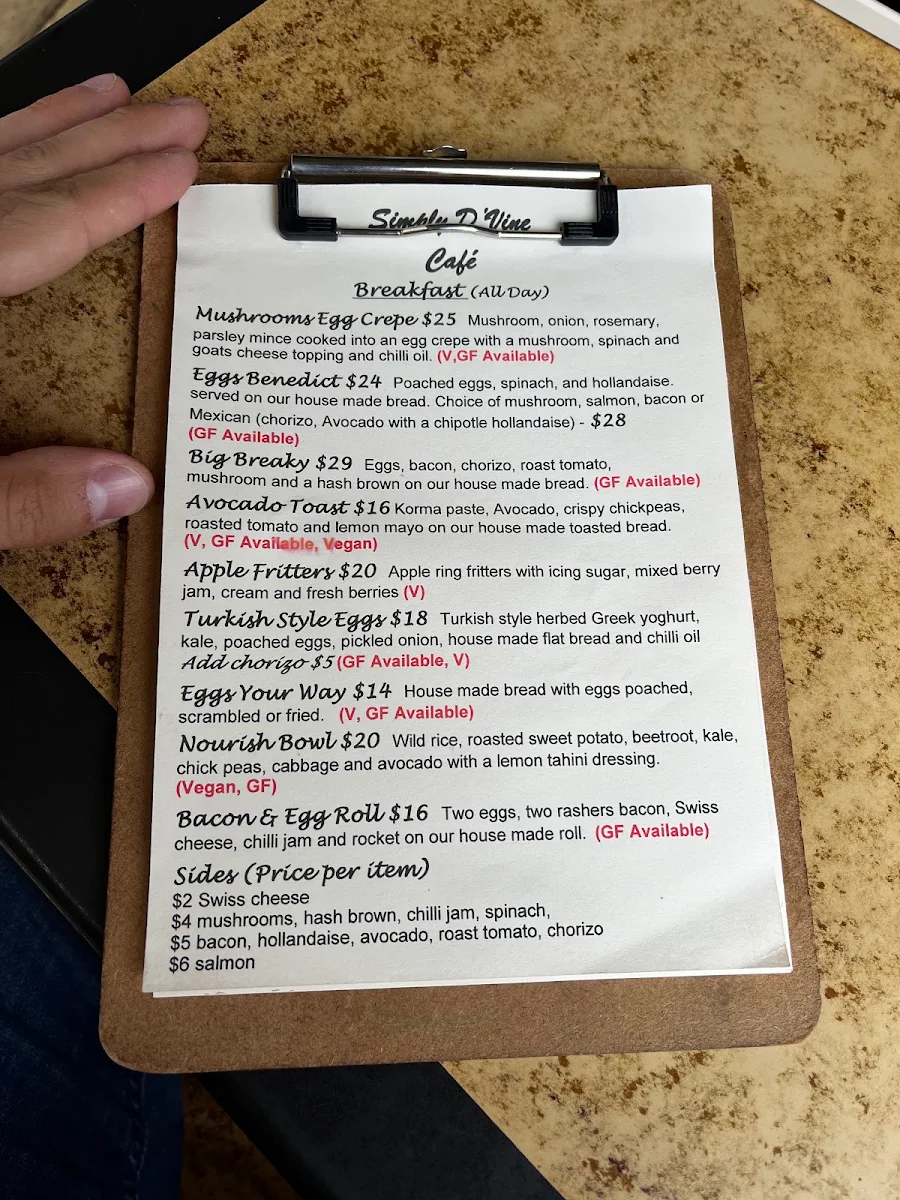 Simply D'Vine
Café
Breakfast (All Day)
Mushrooms Egg Crepe $25 Mushroom, onion, rosemary,
parsley mince cooked into an egg crepe with a mushroom, spinach and
goats cheese topping and chilli oil. (V,GF Available)
Eggs Benedict $24 Poached eggs, spinach, and hollandaise.
served on our house made bread. Choice of mushroom, salmon, bacon or
Mexican (chorizo, Avocado with a chipotle hollandaise) - $28
(GF Available)
Big Breaky $29 Eggs, bacon, chorizo, roast tomato,
mushroom and a hash brown on our house made bread. (GF Available)
Avocado Toast $16 Korma paste, Avocado, crispy chickpeas,
roasted tomato and lemon mayo on our house made toasted bread.
(V, GF Available, Vegan)
Apple Fritters $20 Apple ring fritters with icing sugar, mixed berry
jam, cream and fresh berries (V)
Turkish Style Eggs $18 Turkish style herbed Greek yoghurt,
kale, poached eggs, pickled onion, house made flat bread and chilli oil
Add chorizo $5 (GF Available, V)
Eggs Your Way $14 House made bread with eggs poached,
scrambled or fried. (V, GF Available)
Nourish Bowl $20 Wild rice, roasted sweet potato, beetroot, kale,
chick peas, cabbage and avocado with a lemon tahini dressing.
(Vegan, GF)
Bacon & Egg Roll $16 Two eggs, two rashers bacon, Swiss
cheese, chilli jam and rocket on our house made roll. (GF Available)
Sides (Price per item)
$2 Swiss cheese
$4 mushrooms, hash brown, chilli jam, spinach,
$5 bacon, hollandaise, avocado, roast tomato, chorizo
$6 salmon